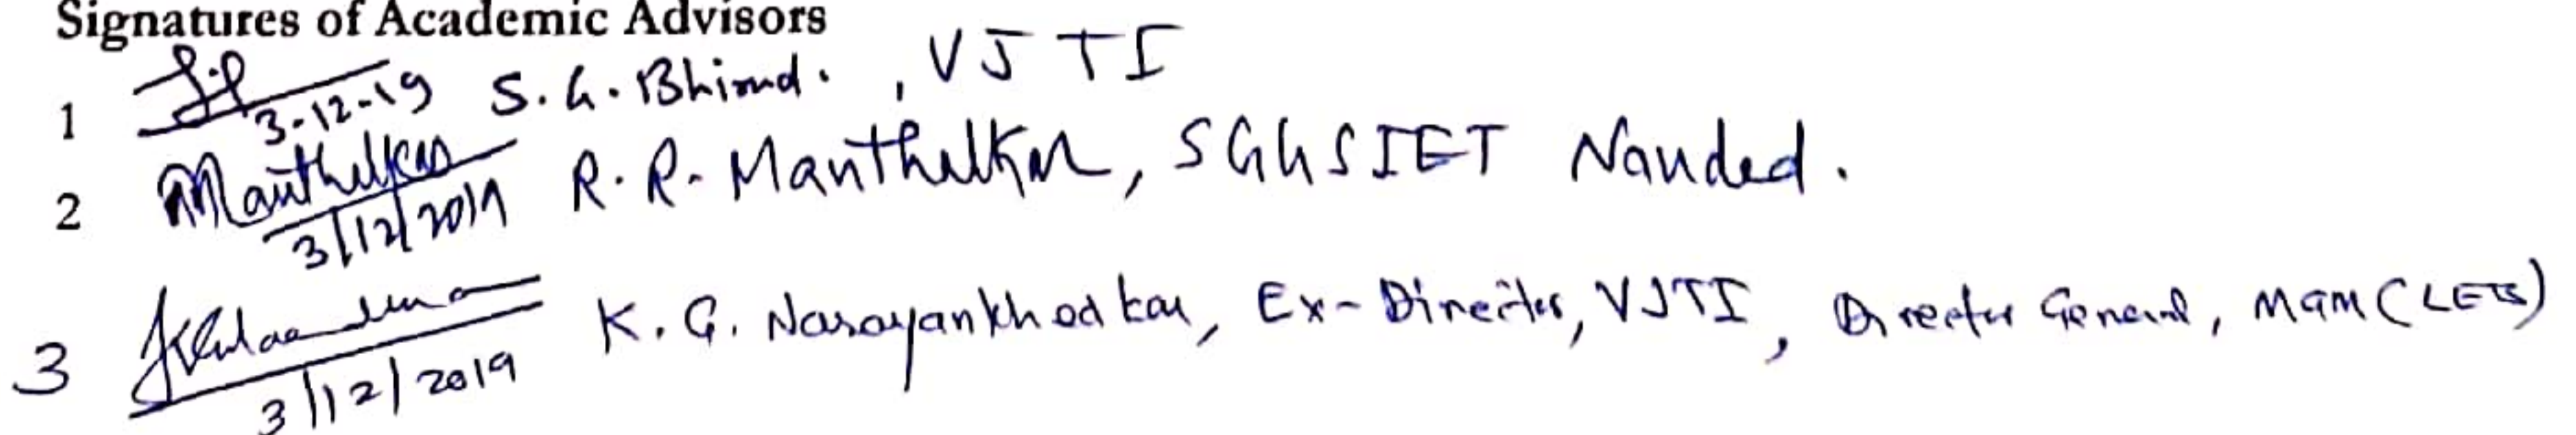 Signatures of Academic Advisors
1 3-12-19 S. G. Bhirud. , VJTI
2 Manthalkar 3/12/2019 R. R. Manthalkar, SGGSIET Nanded.
3 3/12/2019 K. G. Narayankhedkar, Ex-Director, VJTI, Director General, MGM (LETS)